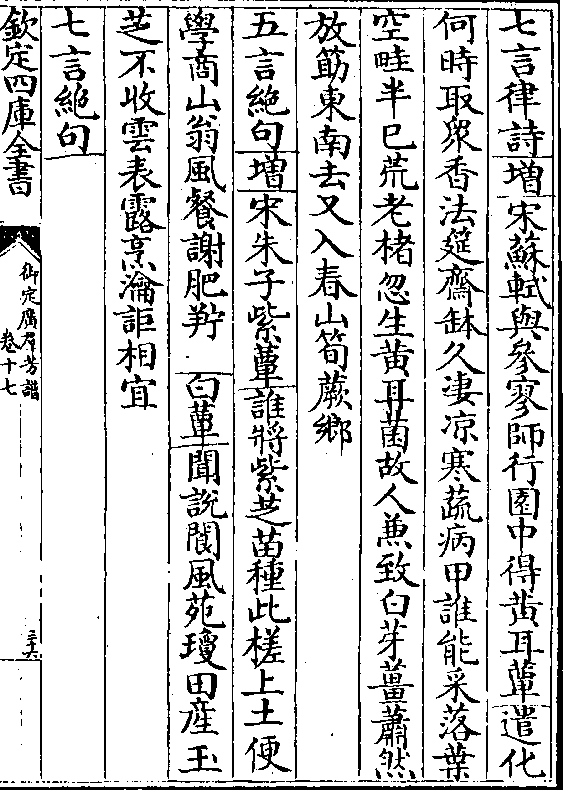 七言律詩增宋蘇軾與參寥師行園中得黄耳蕈遣化
何時取衆香法筵齋缽久凄凉寒蔬病甲誰能采落葉
空畦半已荒老楮忽生黄耳菌故人兼致白芽薑蕭然
放筯東南去又入春山筍蕨鄉
五言絶句增宋朱子紫蕈誰將紫芝苗種此槎上土便
學商山翁風餐謝肥羜　白蕈聞說閬風苑瓊田産玉
芝不收雲表露烹瀹詎相宜
七言絶句
欽定四庫全書
御定廣羣芳譜
卷十七
三六